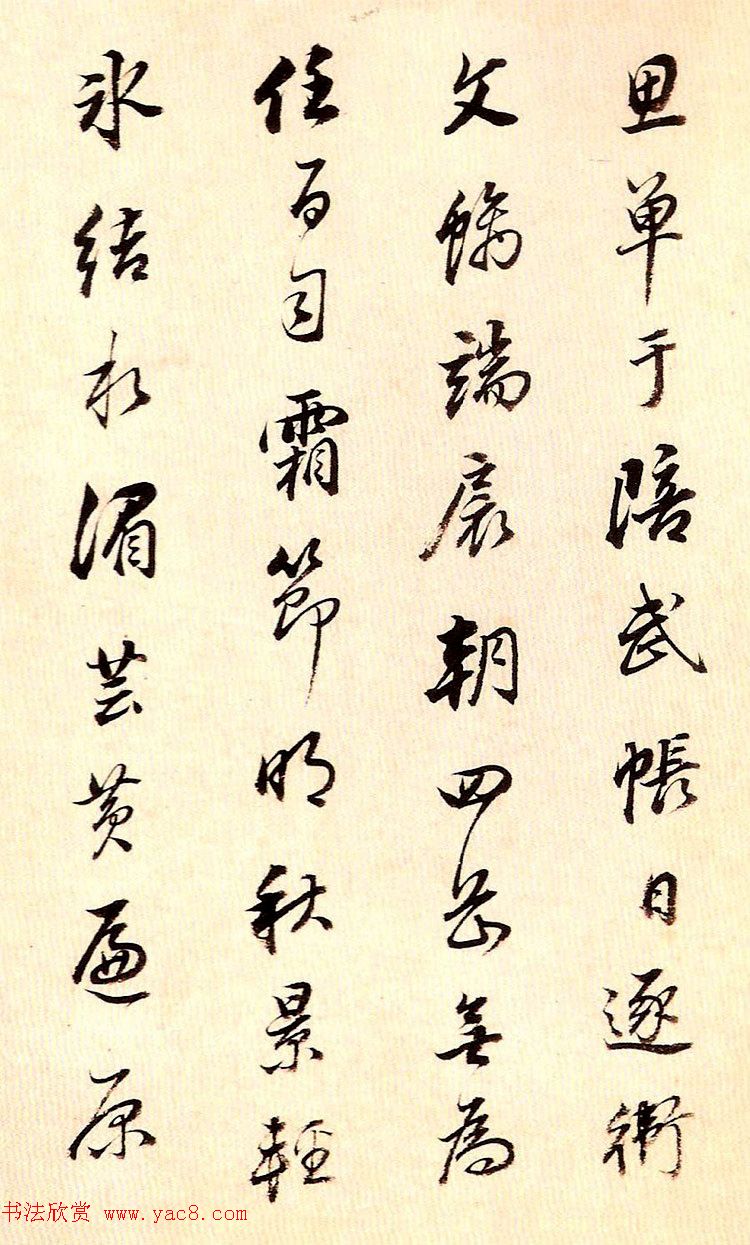 思单于陪武帳日逐衛
文螭端扆朝四岳無為
任百司霜節明秋景輕
冰結水湄芸黄遍原
书法欣赏 www.yac8.com